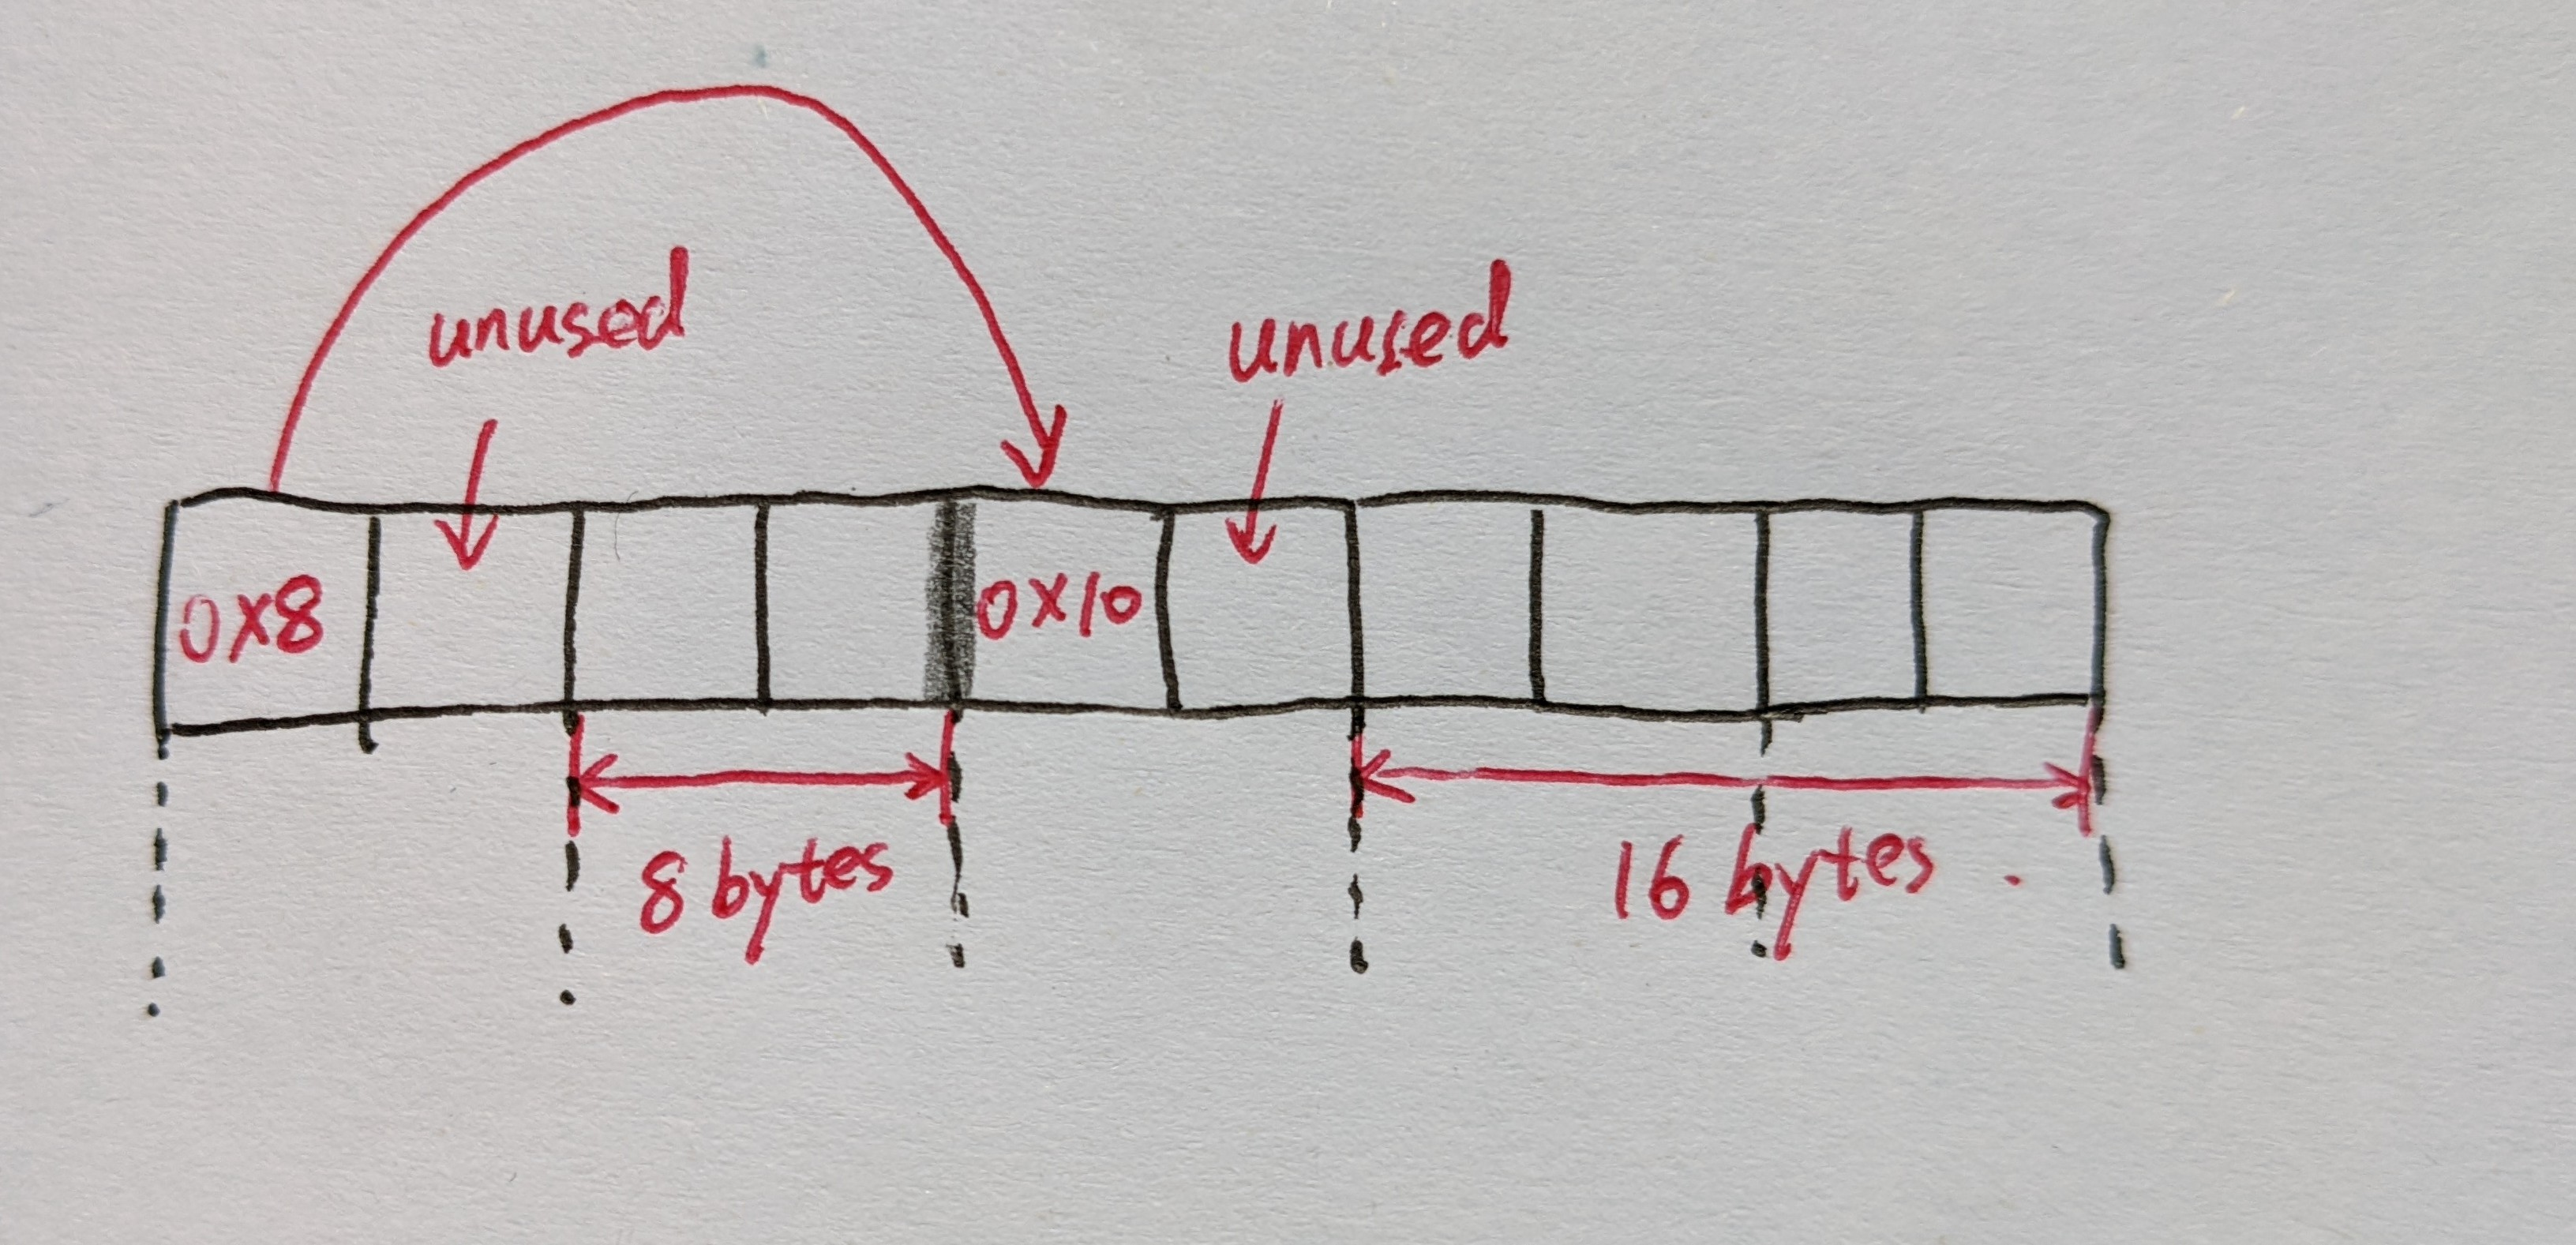 unused
unused
0x8
0x10
8 bytes
16 bytes